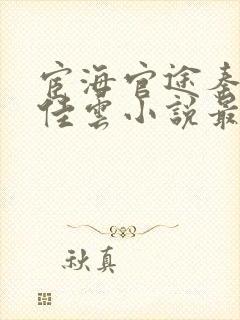 宦海官途秦
佳雲小說最
秋真